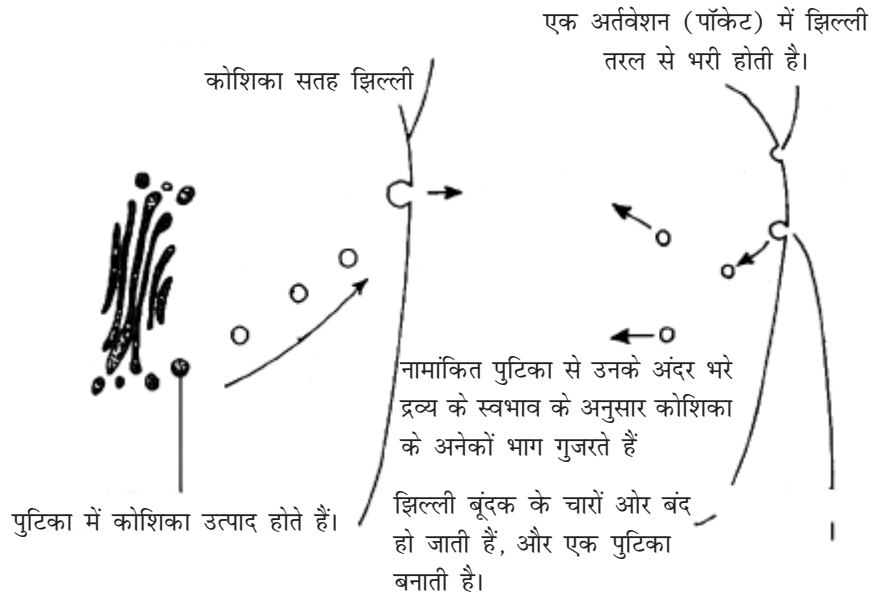 एक अर्तवेशन (पॉकेट) में झिल्ली
तरल से भरी होती है।
कोशिका सतह झिल्ली
नामांकित पुटिका से उनके अंदर भरे
द्रव्य के स्वभाव के अनुसार कोशिका
के अनेकों भाग गुजरते हैं
पुटिका में कोशिका उत्पाद होते हैं।
झिल्ली बूंदक के चारों ओर बंद
हो जाती हैं, और एक पुटिका
बनाती है।